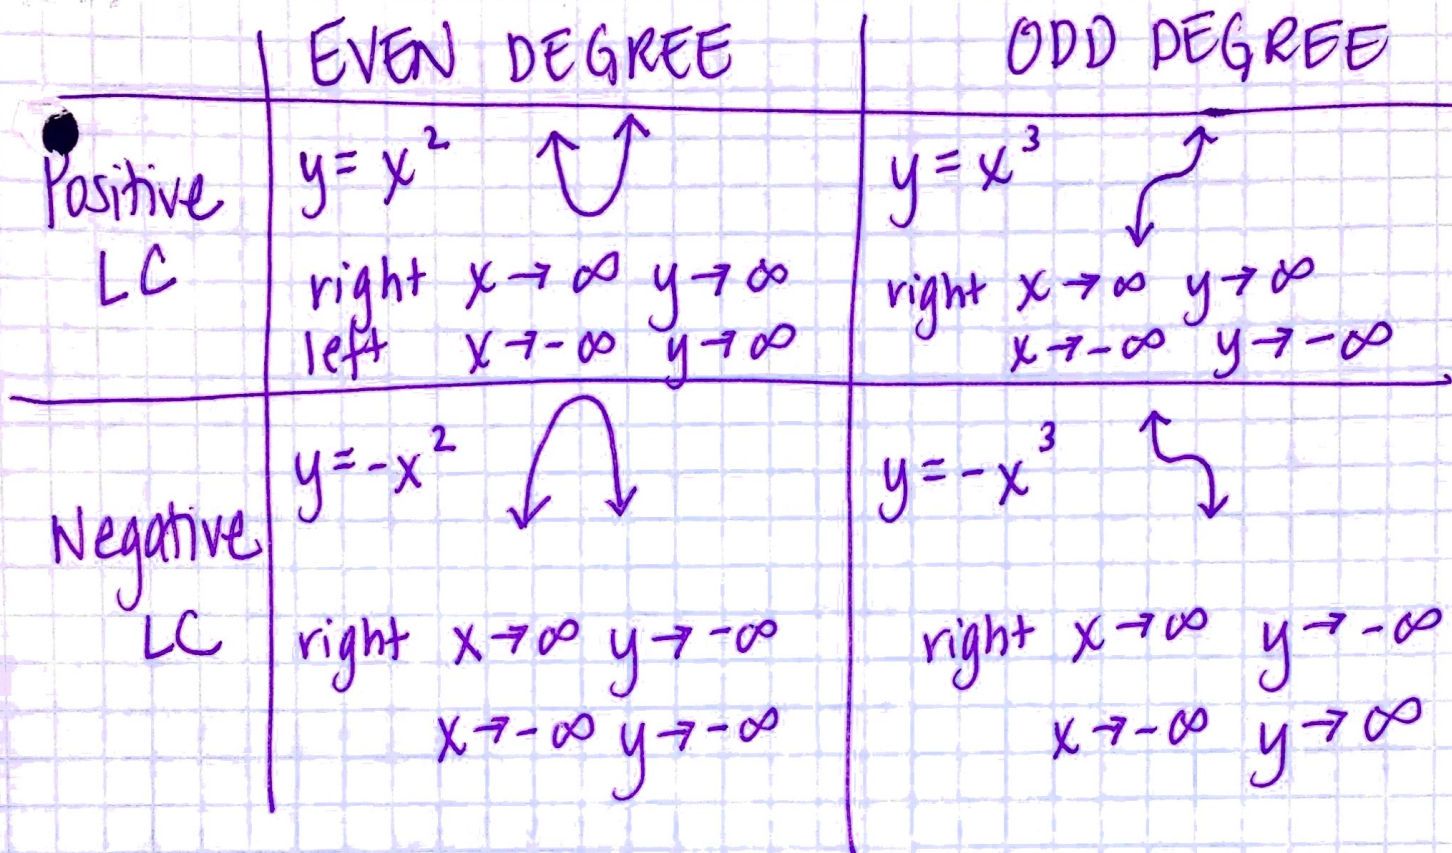 EVEN DEGREE
ODD DEGREE
Positive
LC
y = x²
right x → ∞ y → ∞
left x → -∞ y → ∞
y = x³
right x → ∞ y → ∞
x → -∞ y → -∞
Negative
LC
y = -x²
right x → ∞ y → -∞
x → -∞ y → -∞
y = -x³
right x → ∞ y → -∞
x → -∞ y → ∞